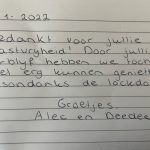 1- 2022
edankt voor jullie
astvryheid! Door julli
erblyf hebben we toch
el erg kunnen geniet
sondanks de lockdo
Groetjes
Alec en Deedee